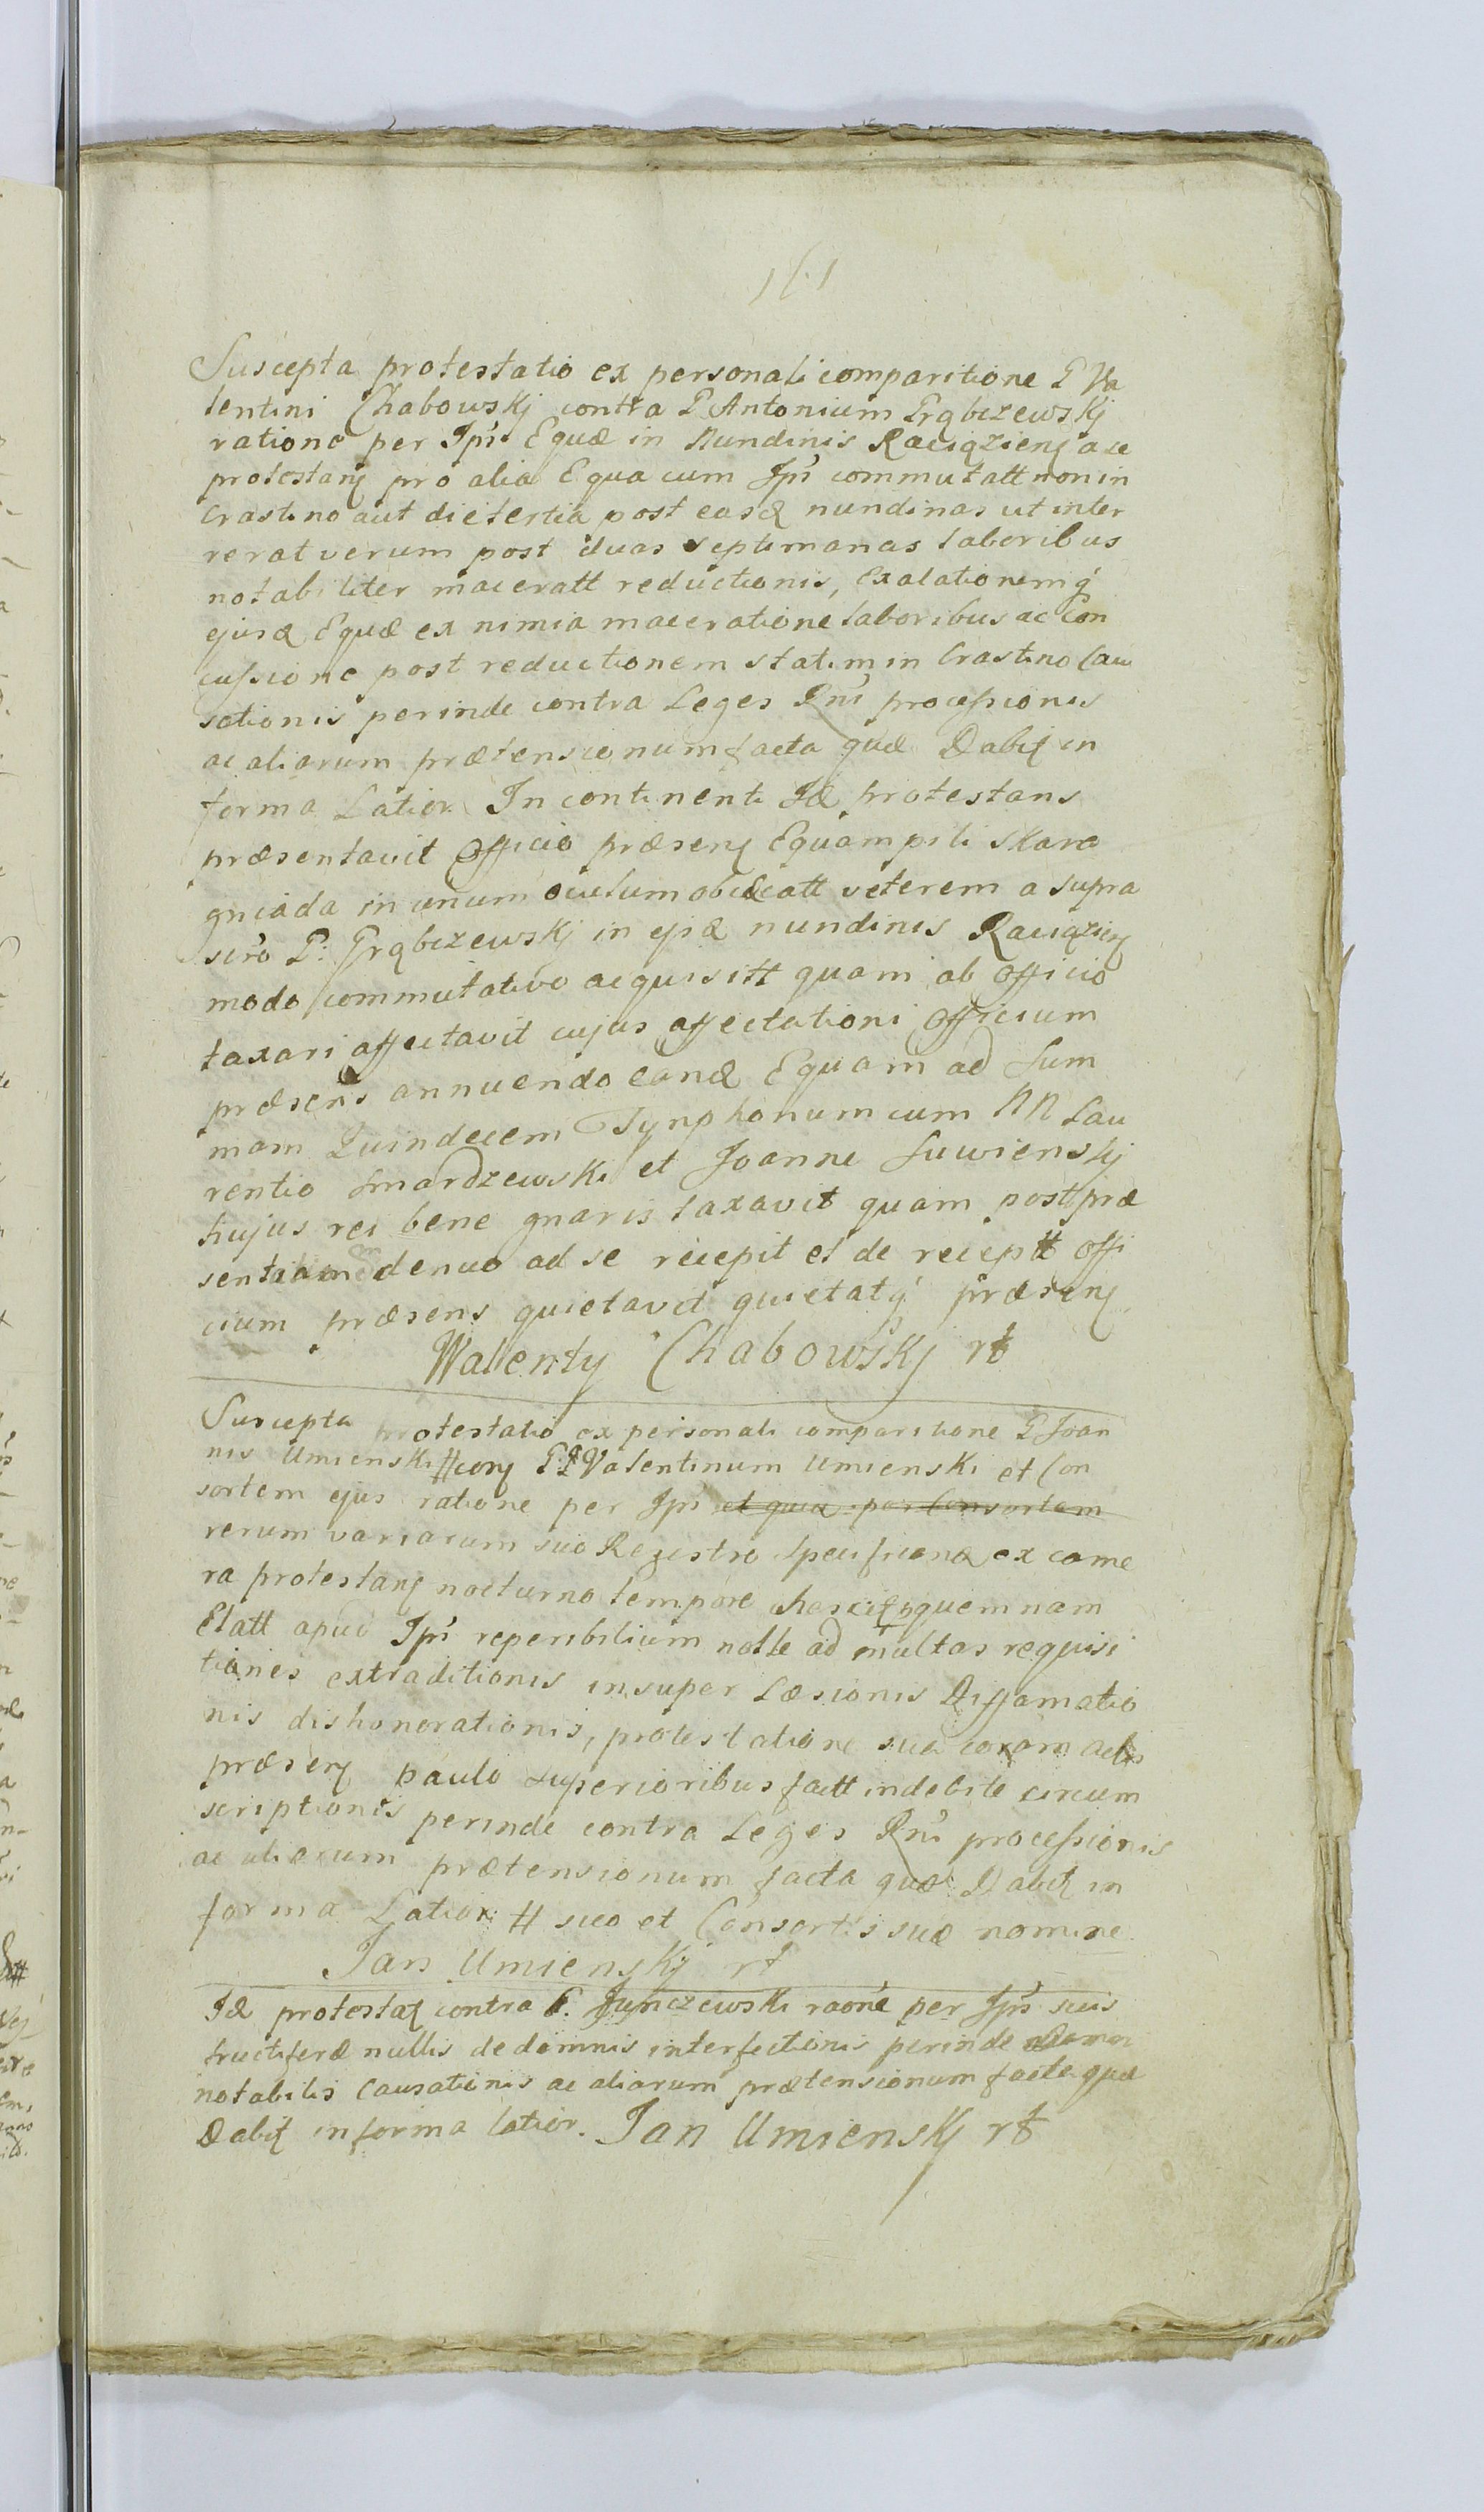 Suscepta protestatio ex personali comparitione P Va
lentini Chabowskj contra P Antonium Grąbczewskj
ratione per Ipm̃ Equæ in Nundinis Raciązien̄ a se
protestan̄ pro alia Equa cum Ipm̃ commutatt non in
Crastino aut die tertia post easd nundinas ut inter
rerat verum post duas septimanas laboribus
notabiliter maceratt reductionis, exalationemq́
ejusd Equæ ex nimia maceratione laboribus ac con
cussione post reductionem statim in Crastino Cau
sationis perinde contra Leges Rni processionis
ac aliarum prætensionum facta quæ Dabit in
forma Latior. In continenti Id protestans
præsentavit Officio præsen̄ Equam pili skaro
gniada in unum oculum obcecatt veterem a supra
scro P: Grąbczewskj in ejsd nundinis Raciązien̄
modo commutativo acquisitt quam ab officio
taxari affectavit cujus affectationi Officium
præsens annuendo eand Equam ad Sum
mam Quindecem Tynphonum cum NN Lau
rentio Smardzewski et Joanne Suwienskj
hujus rei bene gnaris taxavit quam post præ
sentiam denuo ad se recepit et de receptt offi
cium præsens quietavit quietatq́ præsen̄
Walenty Chabowskj rt
Suscepta protestatio ex personali comparitione P Joan
nis Umienski # con̄ P Valentinum Umienski et Con
sortem ejus ratione per Ipm̃ et quia per Consortem
rerum variarum suo Regestro specificand ex came
ra protestan̄ nocturno tempore quemnam
Elatt apud Ipm̃ reperibilium nolle ad multas requisi
tiones extraditionis insuper Læsionis Diffamatio
nis dishonorationis, protestatione sua coram actis
præsen̄ paulo superioribus factt indebite circum
scriptionis perinde contra Leges Rni processionis
ac aliarum prætensionum facta quæ Dabit in
forma Latior: # suo et Consortis suæ nomine
Jan Umienskj rt
Id protestat contra P. Junczewski raone per Ipm̃ suis
fructiferæ nullis de damnis interfectionis perinde
notabilis Causationis ac aliarum prætensionum facta quæ
Dabit in forma latior. Jan Umienskj rt